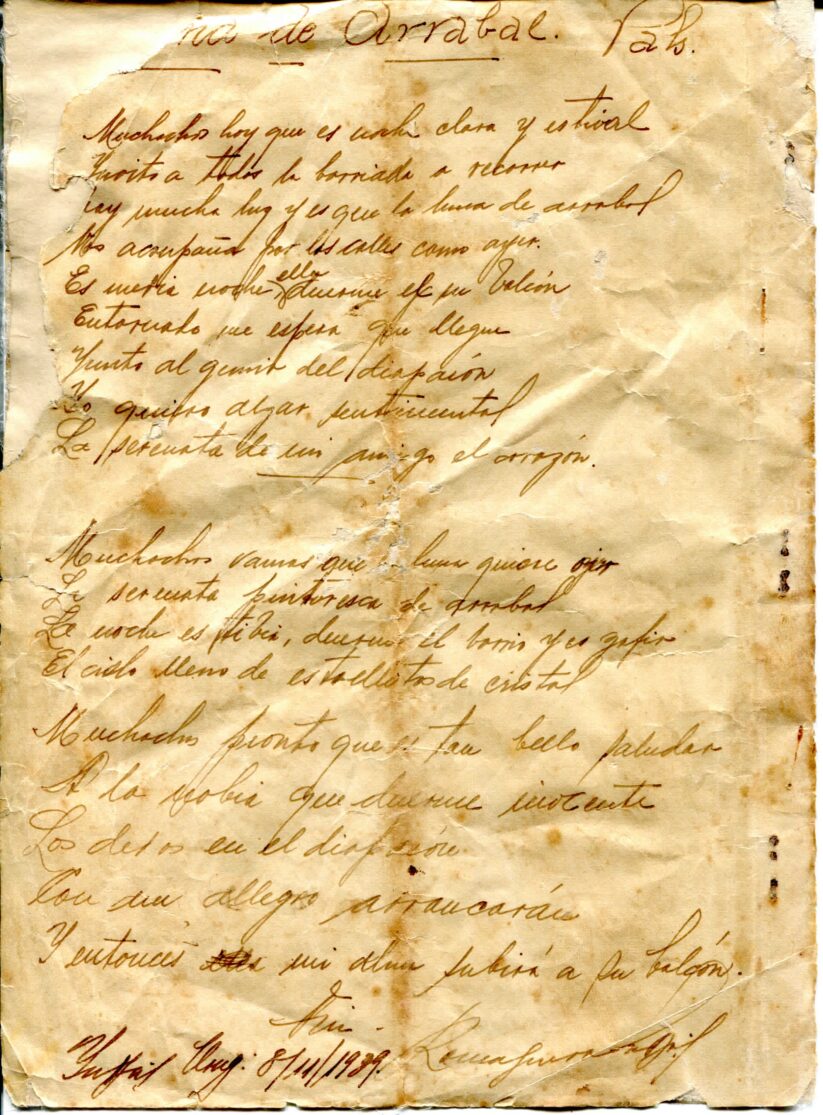 na de Arrabal. Vals.
Muchachos hoy que es noche clara y estival
Invito a todos la barriada a recorrer
ay mucha luz y es que la luna de arrabal
Nos acompaña por las calles como ayer.
Es media noche, ella duerme y su balcón
Entornado me espera que llegue
Junto al gemir del diapasón
Yo quiero dejar sentimental
La serenata de mi amigo el corazón.
Muchachos vamos que la luna quiere oir
La serenata pintoresca de arrabal
La noche es tibia, duerme el barrio y es zafir
El cielo lleno de estrellitas de cristal
Muchachos pronto que es tan bello saludar
A la novia que duerme inocente
Los dedos en el diapasón
Con un allegro arrancarán
Y entonces mi alma subirá a su balcón.
Fin.
8/11/1939.